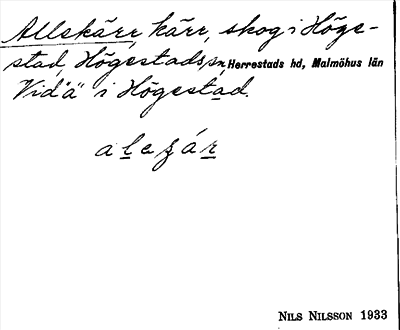 Allskärr, kärr, skog i Höge-
stad, Högestads sn, Herrestads hd, Malmöhus län
Vid "ä" i Högestad.
NILS NILSSON 1933